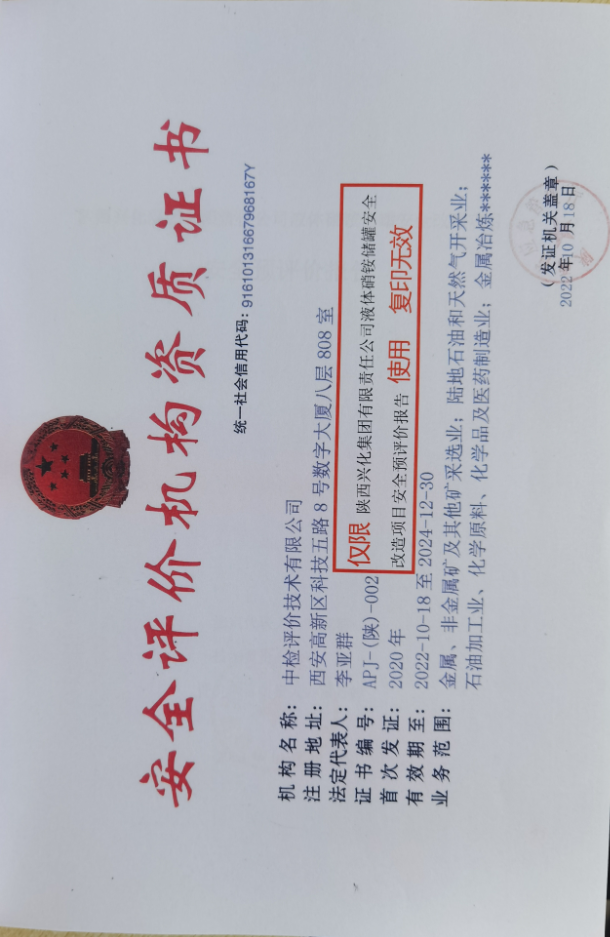 安全评价机构资质证书
统一社会信用代码：91610131667968167Y
机构名称：中检评价技术有限公司
注册地址：西安高新区科技五路8号数字大厦八层808室
法定代表人：李亚群
证书编号：APJ-(陕)-002
首次发证：2020年
有效期至：2022-10-18至2024-12-30
业务范围：金属、非金属矿及其他矿采选业；陆地石油和天然气开采业；
石油加工业、化学原料、化学品及医药制造业；金属冶炼******
仅限 陕西兴化集团有限责任公司液体硝铵储罐安全
改造项目安全预评价报告 使用 复印无效
（发证机关盖章）
2022年10月18日